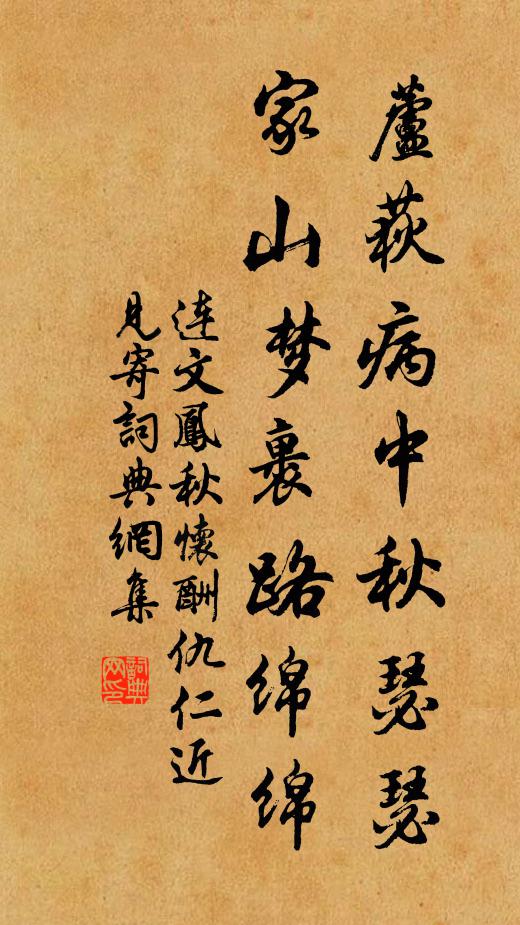 蘆萩病中秋瑟瑟
家山梦裏路绵绵
连文鳳秋懷酬仇仁近
見寄詞典網集
詞典
网印